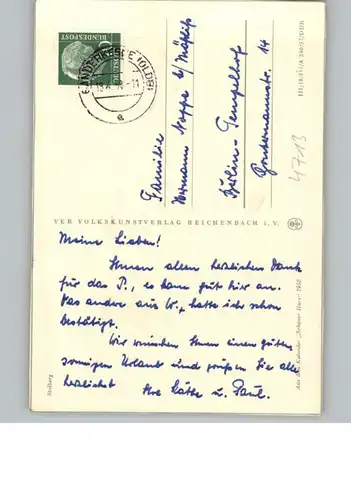 DEUTSCHE
BUNDESPOST
(OLDB)
e
Familie
Hermann Noppe b/
Berlin - Tempelhof
14
4713
III/18/211/A 240/57/DDR
VEB VOLKSKUNSTVERLAG REICHENBACH i. V.
Meine Lieben!
Ihnen allen herzlichen Dank
für das P., es kam gut hier an.
Das andere aus W., hatte ich schon
bestätigt.
Wir wünschen Ihnen einen guten,
sonnigen Urlaub und grüßen Sie alle
herzlichst Ihre Käthe u. Paul.
Stolberg
Aus dem Kalender „Schöner Harz" 1958